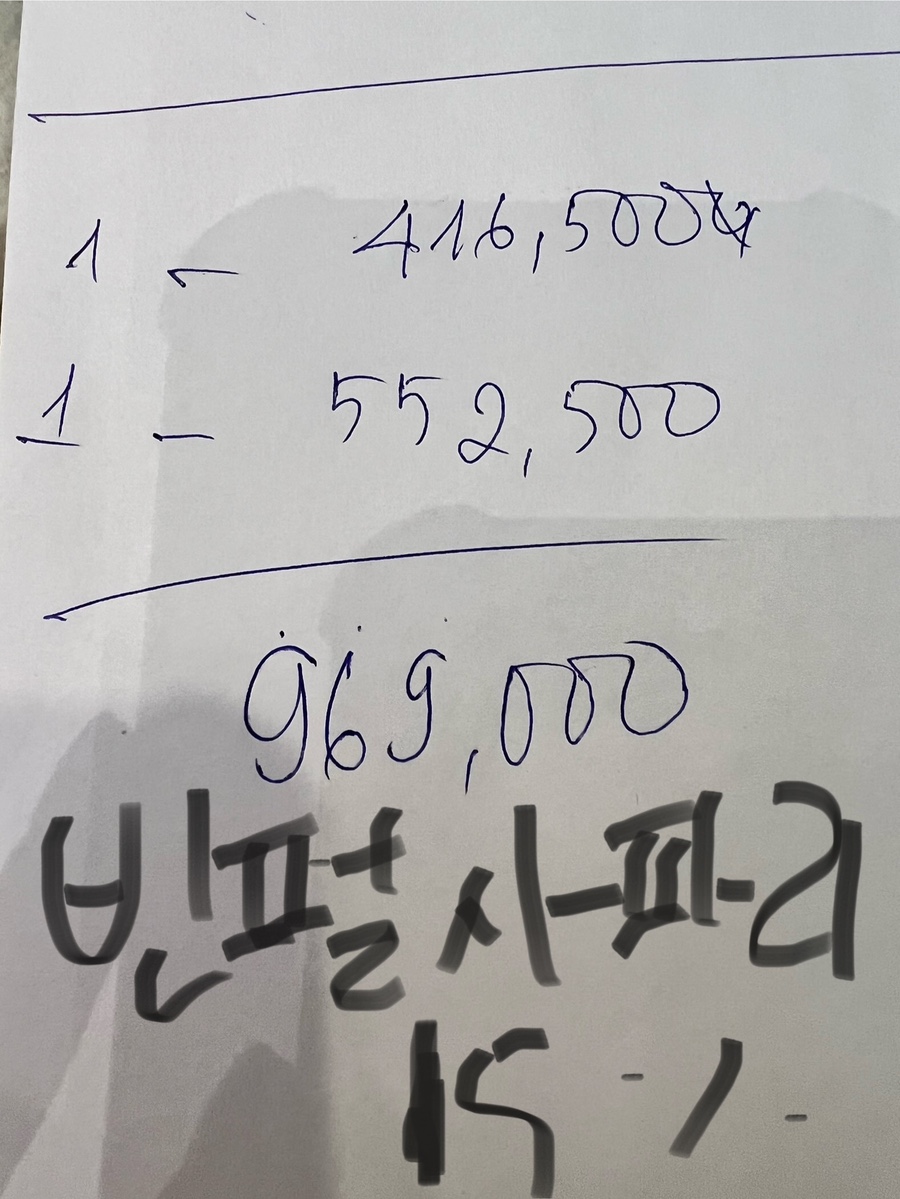 1 - 416,500
1 - 552,500
969,000
빈펄 사파리
15 %